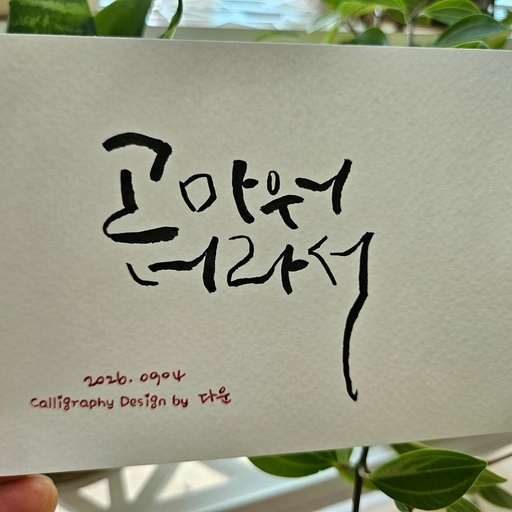 고마워
너라서
2026. 0904
Calligraphy Design by 다운